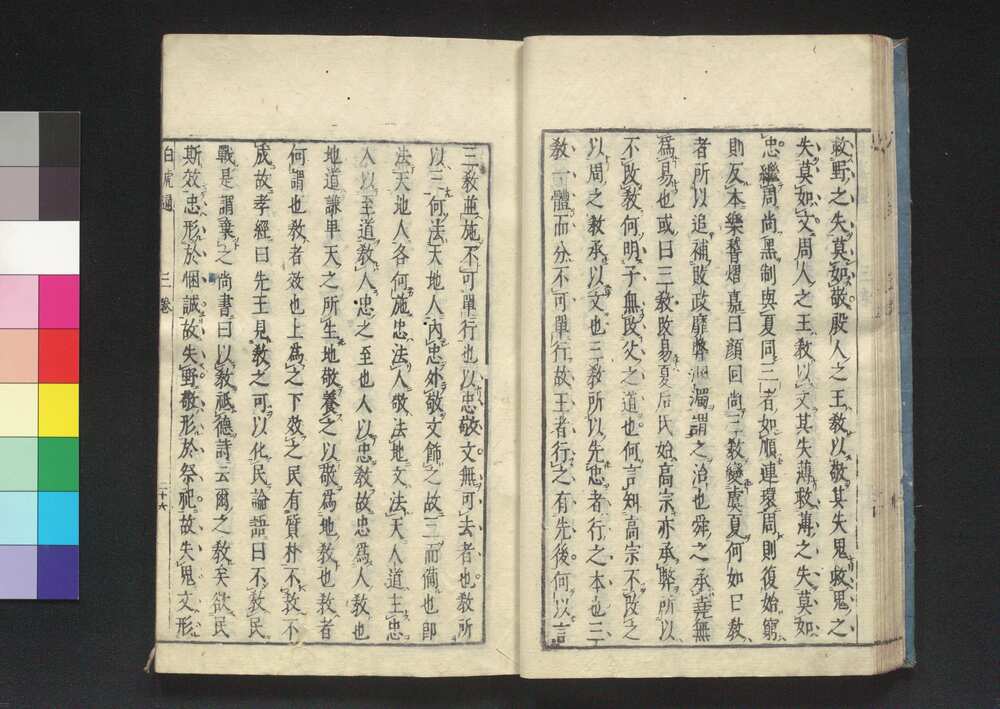 救野之失莫如敬殷人之王教以敬其失鬼救鬼之
失莫如文周人之王教以文其失薄救薄之失莫如
忠繼周尚黑制與夏同三者如順連環周則復始窮
則反本樂稽熠嘉曰顏回尚三教變虞夏何如曰教
者所以追補敗政靡弊溷濁謂之治也舜之承堯無
爲易也或曰三教改易夏后氏始高宗亦承弊所以
不改教何明子無改父之道也何言知高宗不改之
以周之教承以文也三教所以先忠者行之本也三
教一體而分不可單行故王者行之有先後何以言
三教並施不可單行也以忠敬文無可去者也教所
以三何法天地人內忠外敬文飾之故三而備也卽
法天地人各何施忠法人敬法地文法天人道主忠
人以至道教人忠之至也人以忠教故忠爲人教也
地道謙卑天之所生地敬養之以敬爲地教也教者
何謂也教者效也上爲之下效之民有質朴不教不
成故孝經曰先王見教之可以化民論語曰不教民
戰是謂棄之尚書曰以教祗德詩云爾之教矣欲民
斯效忠形於悃誠故失野敬形於祭祀故失鬼文形
白虎通 三卷 二十六